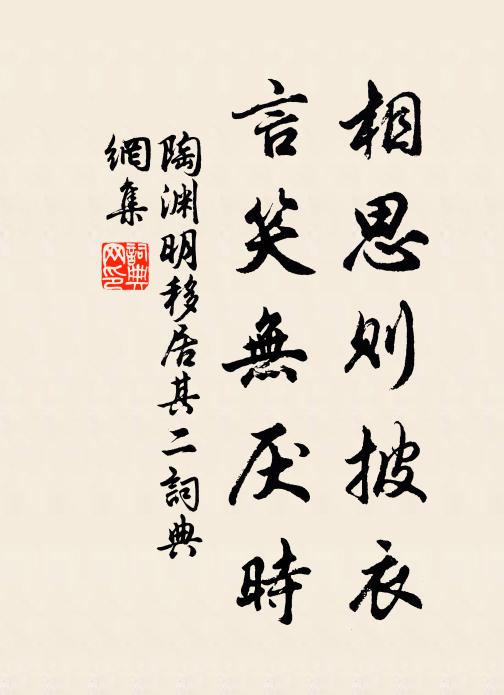 相思则披衣
言笑無厌時
陶渊明移居其二詞典
網集
詞典网印